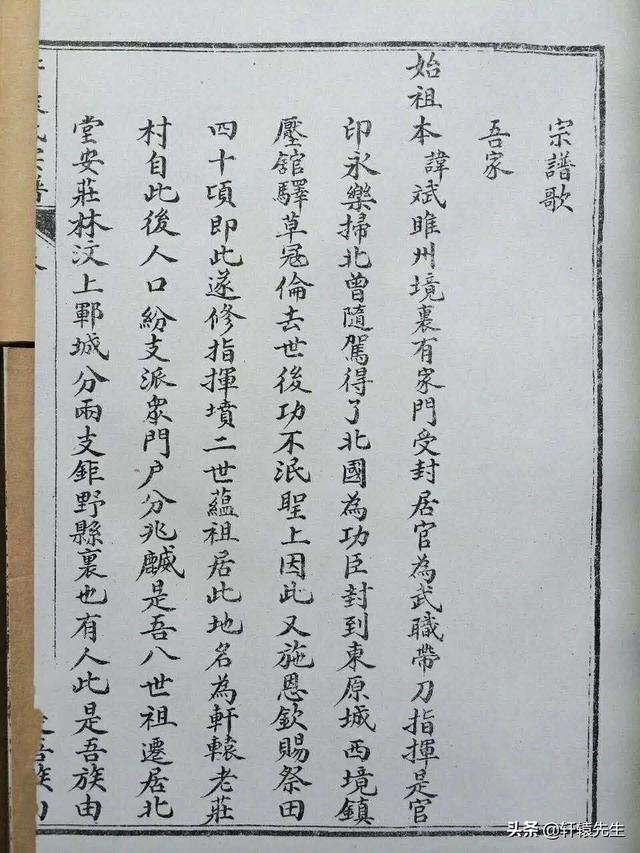 宗譜歌
吾家
始祖本諱斌睢州境裏有家門受封居官為武職帶刀指揮是官
印永樂掃北曾隨駕得了北國為功臣封到東原城西境鎮
壓舘驛草冠倫去世後功不泯聖上因此又施恩欽賜祭田
四十頃即此遂修指揮墳二世蘊祖居此地名為軒轅老莊
村自此後人口紛支派衆門户分兆是吾八世祖遷居北
堂安莊林汶上鄆城分兩支鉅野縣裏也有人此是吾族由
头条 @轩辕先生